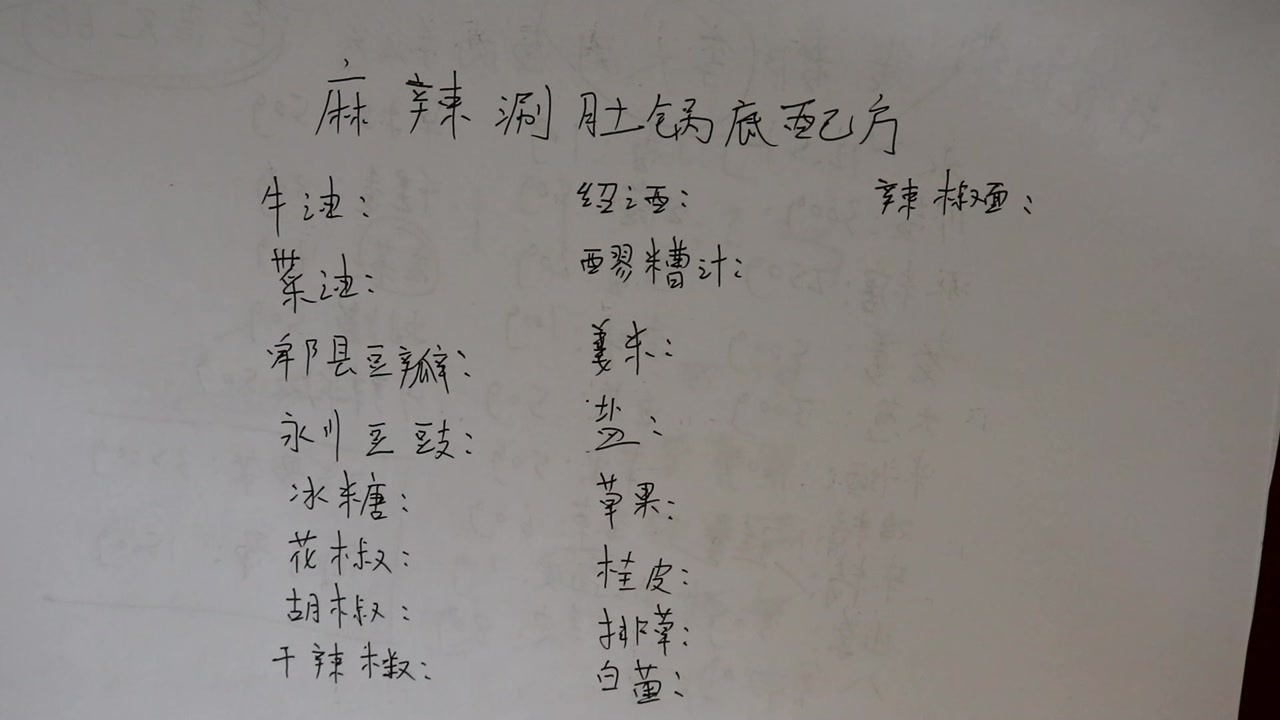 麻辣涮肚锅底配方
牛油：
菜油：
郫县豆瓣：
永川豆豉：
冰糖：
花椒：
胡椒：
干辣椒：
绍酒：
醪糟汁：
姜末：
盐：
草果：
桂皮：
排草：
白菌：
辣椒面：